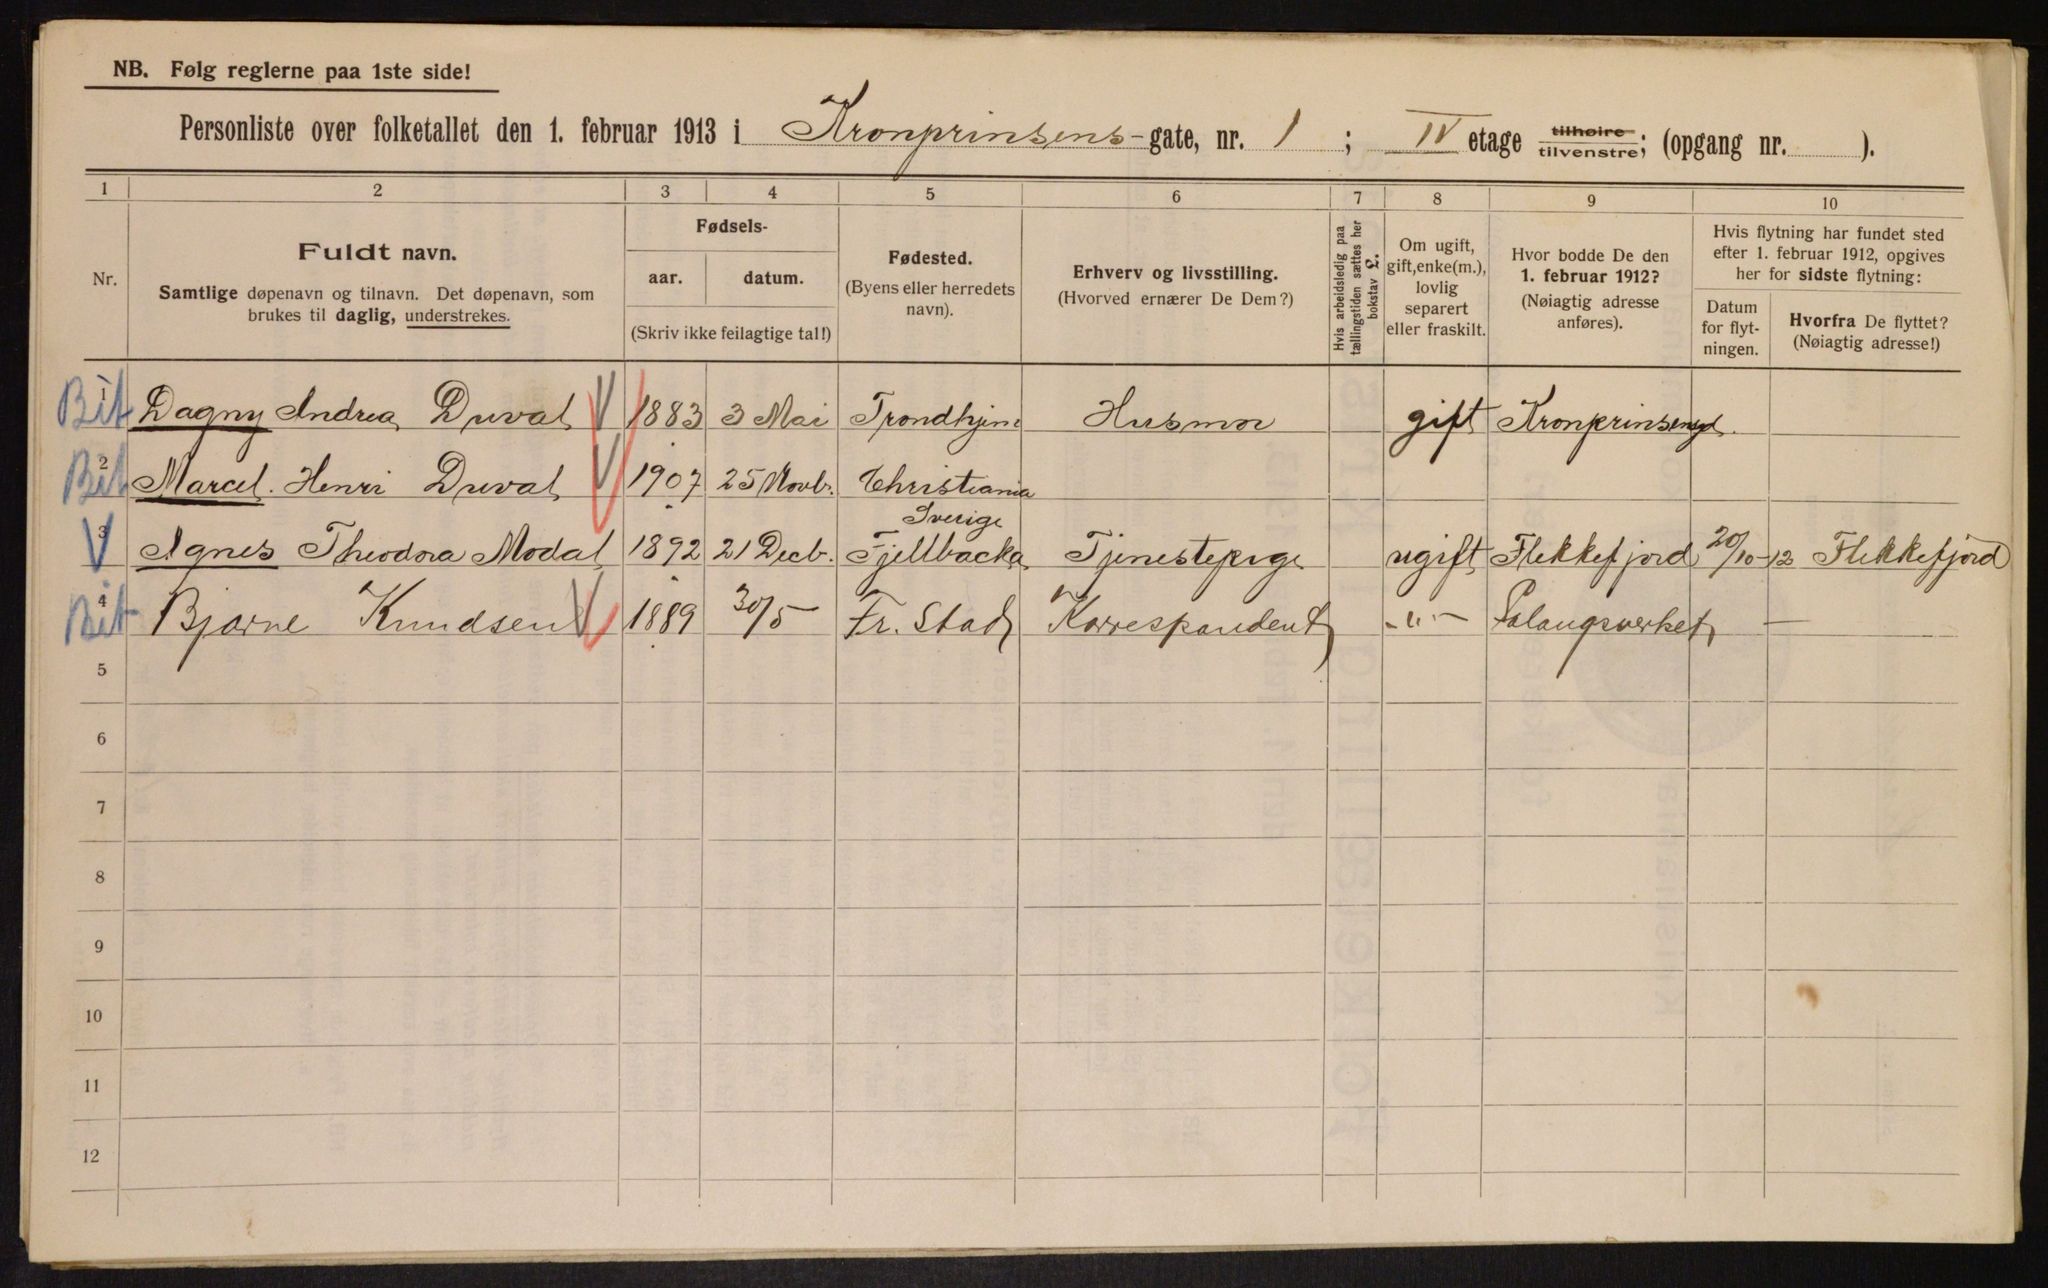 NB. Følg reglerne paa 1ste side!
Personliste over folketallet den 1. februar 1913 i Kronprinsens-gate, nr. 1 ; IV etage tilhøire tilvenstre; (opgang nr. ).
1 2 3 4 5 6 7 8 9 10
Nr.
Fuldt navn.
Samtlige døpenavn og tilnavn. Det døpenavn, som
brukes til daglig, understrekes.
Fødsels-
aar. datum.
(Skriv ikke feilagtige tal!)
Fødested.
(Byens eller herredets
navn).
Erhverv og livsstilling.
(Hvorved ernærer De Dem?)
Hvis arbeidsledig paa
tællingstiden sættes her
bokstav L.
Om ugift,
gift, enke(m.),
lovlig
separert
eller fraskilt.
Hvor bodde De den
1. februar 1912?
(Nøiagtig adresse
anføres).
Hvis flytning har fundet sted
efter 1. februar 1912, opgives
her for sidste flytning:
Datum
for flyt-
ningen.
Hvorfra De flyttet?
(Nøiagtig adresse!)
Bit 1 Dagny Andrea Duval V 1883 3 Mai Trondhjem Husmor gift Kronprinsensgt.
Bit 2 Marcel. Henri Duval V 1907 25 Novbr. Christiania
Sverige
V 3 Agnes Theodora Modal 1892 21 Decb. Fjellbacka Tjenestepige ugift Flekkefjord 20/10-12 Flekkefjord
Bit 4 Bjarne Knudsen V 1889 30/5 Fr. Stad Korrespondent -"-
5
6
7
8
9
10
11
12